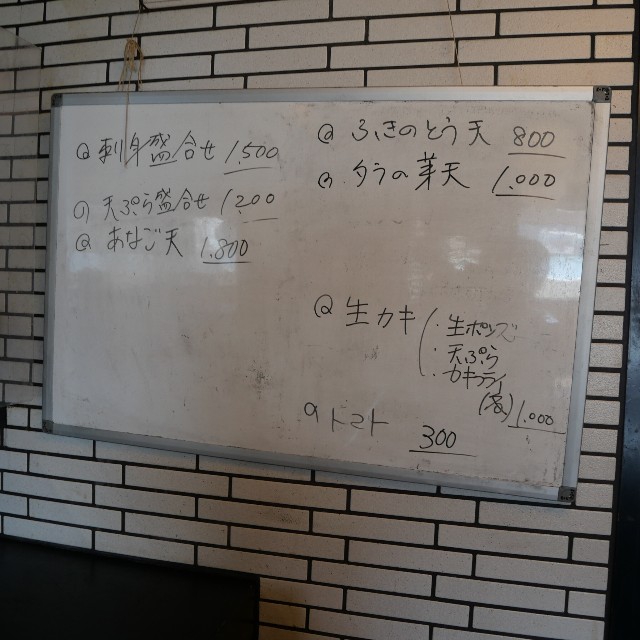 刺身盛合せ 1,500
天ぷら盛合せ 1,200
あなご天 1,800
ふきのとう天 800
タラの芽天 1,000
生カキ
・生ポンズ
・天ぷら
・カキフライ
(各) 1,000
トマト 300